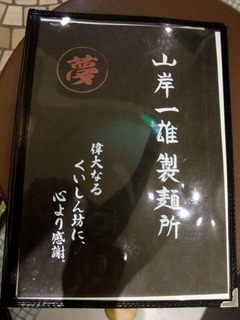 山岸一雄製麺所
夢
偉大なる
くいしん坊に、
心より感謝。